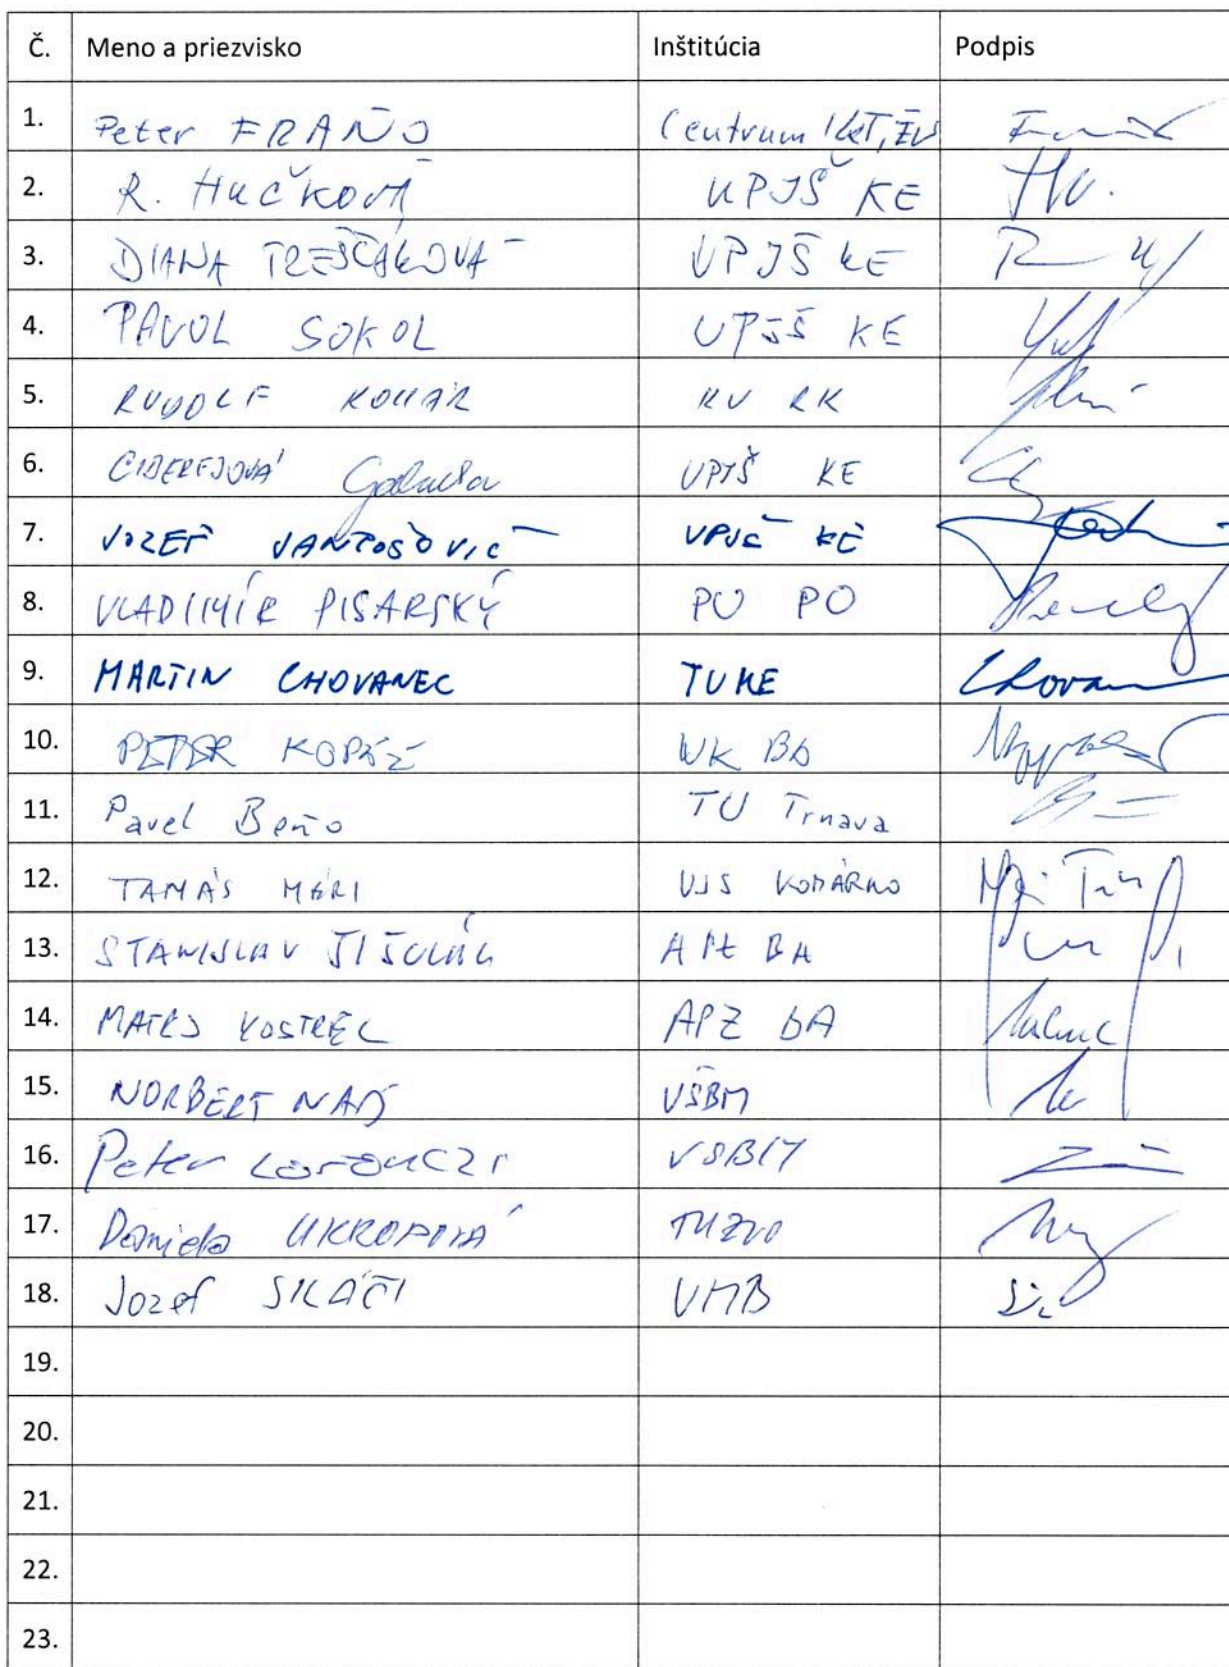 Č. Meno a priezvisko Inštitúcia Podpis
1. Peter FRAŇO Centrum IKT, ŽU
2. R. HUČKOVÁ UPJŠ KE
3. DIANA TREŠČÁKOVÁ UPJŠ KE
4. PAVOL SOKOL UPJŠ KE
5. RUDOLF KOMÁR KU RK
6. Gabriela UPJŠ KE
7. JOZEF JANTOŠOVIČ UPJŠ KE
8. VLADIMÍR PISARSKÝ PU PO
9. MARTIN CHOVANEC TUKE Chovan
10. PETER KOPÁČ UK BA
11. Pavel Beňo TU Trnava
12. TAMÁS MÉRI UJS KOMÁRNO
13. STANISLAV APZ BA
14. MATEJ KOSTREC APZ BA
15. NORBERT NAĎ VŠBM
16. Peter Lorenczi VŠBM
17. Daniela UKROPOVÁ TUZVO
18. Jozef UMB
19.
20.
21.
22.
23.